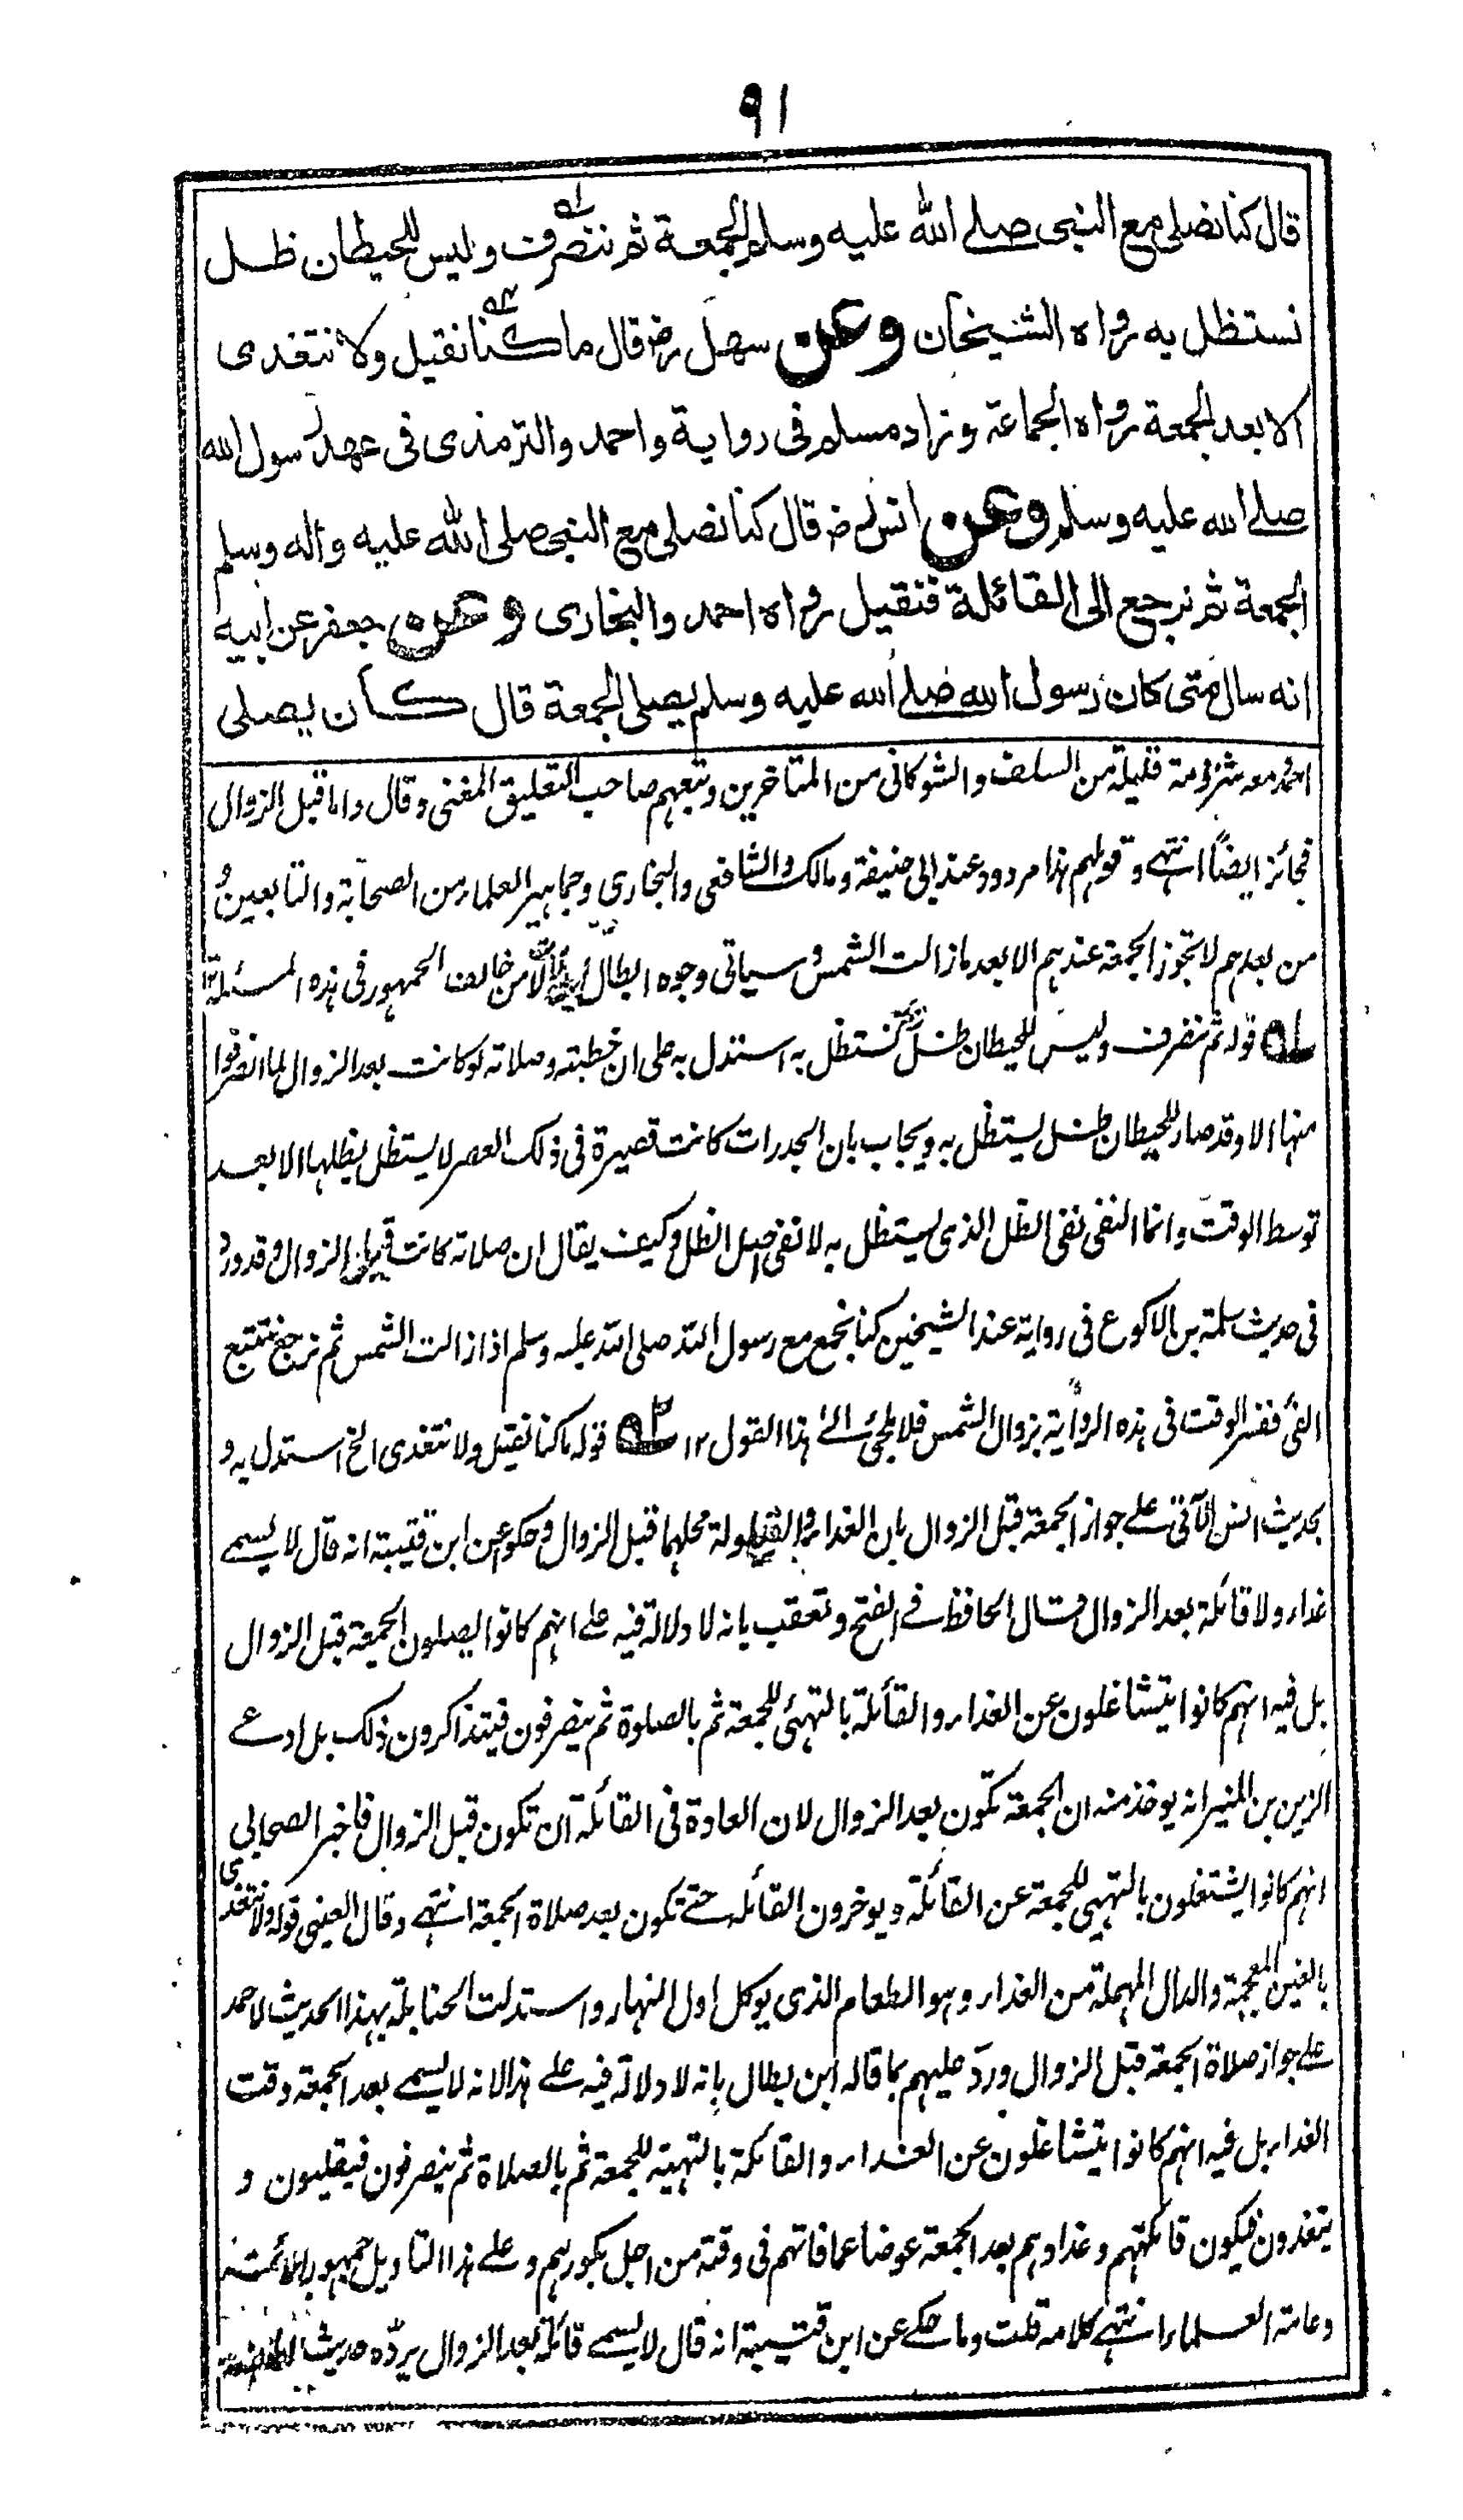 ٩١
قال كنا نصلى مع النبى صلے الله عليه وسلم الجمعة ثم ننصرف وليس للحيطان ظل
نستظل به رواه الشيخان وعن سهل رض قال ما كنا نقيل ولا نتغدى
الا بعد الجمعة رواه الجماعة وزاد مسلم فى رواية واحمد والترمذى فى عهد رسول الله
صلے الله عليه وسلم وعن انس رض قال كنا نصلى مع النبى صلى الله عليه واله وسلم
الجمعة ثم نرجع الى القائلة فنقيل رواه احمد والبخارى وعن جعفر عن ابيه
انه سال متى كان رسول الله صلے الله عليه وسلم يصلى الجمعة قال كان يصلى
احمد ومعه شرذمة قليلة من السلف والشوكانى من المتاخرين وتبعهم صاحب التعليق المغنى وقال واما قبل الزوال
فجائز ايضًا انتهے وقولهم هذا مردود عند ابى حنيفة ومالك والشافعى والبخارى وجماهير العلماء من الصحابة والتابعين و
من بعدهم لا تجوز الجمعة عندهم الا بعد ما زالت الشمس وسياتى وجوه ابطال من خالف الجمهور فى هذه المسئلة ١٢
ل٥ قوله ثم ننصرف وليس للحيطان ظل نستظل به استدل به على ان خطبته وصلاته لو كانت بعد الزوال لما انصرفوا
منها الا وقد صار للحيطان ظل يستظل به ويجاب بان الجدرات كانت قصيرة فى ذلك العصر لا يستظل بظلها الا بعد
توسط الوقت وانما النفى نفى الظل الذى يستظل به لا نفى اصل الظل وكيف يقال ان صلاته كانت قبل الزوال وقد ورد
فى حديث سلمة بن الاكوع فى رواية عند الشيخين كنا نجمع مع رسول الله صلى الله عليه وسلم اذا زالت الشمس ثم نرجع نتتبع
الفئ ففسر الوقت فى هذه الرواية بزوال الشمس فلا ملجئ الے هذا القول ١٢ ٢٥ قوله ما كنا نقيل ولا نتغدى الخ استدل به و
بحديث انس الآتى علے جواز الجمعة قبل الزوال بان الغداء والقيلولة محلهما قبل الزوال وحكوا عن ابن قتيبة انه قال لا يسمے
غداء ولا قائلة بعد الزوال وقال الحافظ فے الفتح وتعقب بانه لا دلالة فيه علے انهم كانوا يصلون الجمعة قبل الزوال
بل فيه انهم كانوا يتشاغلون عن الغداء والقائلة بالتهئ للجمعة ثم بالصلوة ثم ينصرفون فيتذاكرون ذلك بل ادعے
الزين بن المنير انه يوخذ منه ان الجمعة تكون بعد الزوال لان العادة فى القائلة ان تكون قبل الزوال فاخبر الصحابى
انهم كانوا يشتغلون بالتهيى للجمعة عن القائلة ويوخرون القائلة حتے تكون بعد صلاة الجمعة انتهے وقال العينى قوله ولا نتغدى
بالغين المعجمة والدال المهملة من الغداء وهو الطعام الذى يوكل اول النهار واستدلت الحنابلة بهذا الحديث لاحمد
علے جواز صلاة الجمعة قبل الزوال وردّ عليهم بما قاله ابن بطال بانه لا دلالة فيه علے هذا لانه لا يسمے بعد الجمعة وقت
الغداء بل فيه انهم كانوا يتشاغلون عن الغداء والقائلة بالتهيئة للجمعة ثم بالصلاة ثم ينصرفون فيقيلون و
يتغدون فيكون قائلتهم وغداوهم بعد الجمعة عوضا عما فاتهم فى وقته من اجل بكورهم وعلے هذا التاويل جمهور الائمة
وعامة العلماء انتهے كلامه قلت وما حكے عن ابن قتيبة انه قال لا يسمے قائلة بعد الزوال يردّه حديث